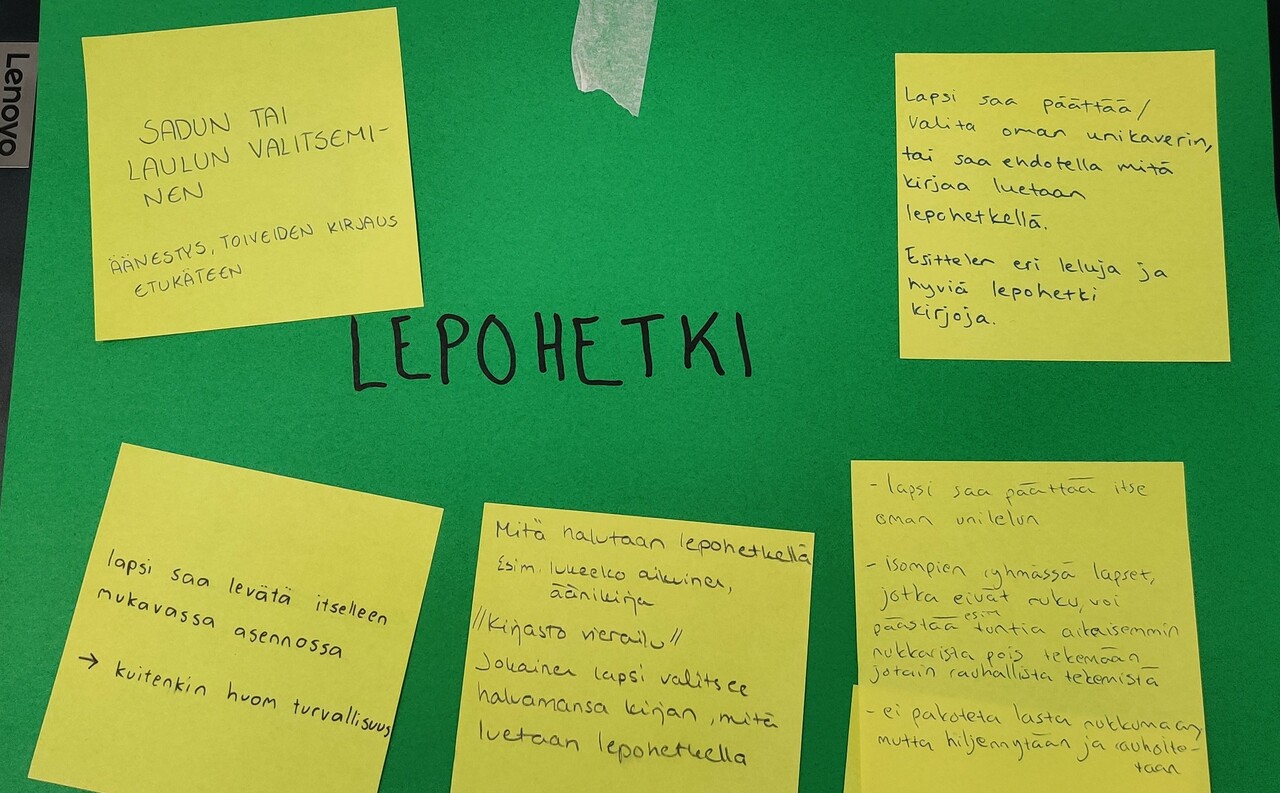 Lenovo
SADUN TAI
LAULUN VALITSEMI-
NEN
ÄÄNESTYS, TOIVEIDEN KIRJAUS
ETUKÄTEEN
Lapsi saa päättää/
valita oman unikaverin,
tai saa ehdotella mitä
kirjaa luetaan
lepohetkellä.
Esittelen eri leluja ja
hyviä lepohetki
kirjoja.
LEPOHETKI
lapsi saa levätä itselleen
mukavassa asennossa
→ kuitenkin huom turvallisuus
Mitä halutaan lepohetkellä
Esim. lukeeko aikuinen,
äänikirja
//Kirjasto vierailu//
Jokainen lapsi valitsee
haluamansa kirjan, mitä
luetaan lepohetkellä
- lapsi saa päättää itse
oman unilelun
- isompien ryhmässä lapset,
jotka eivät nuku, voi
päästää esim tuntia aikaisemmin
nukkarista pois tekemään
jotain rauhallista tekemistä
- ei pakoteta lasta nukkumaan,
mutta hiljennytään ja rauhoite-
taan